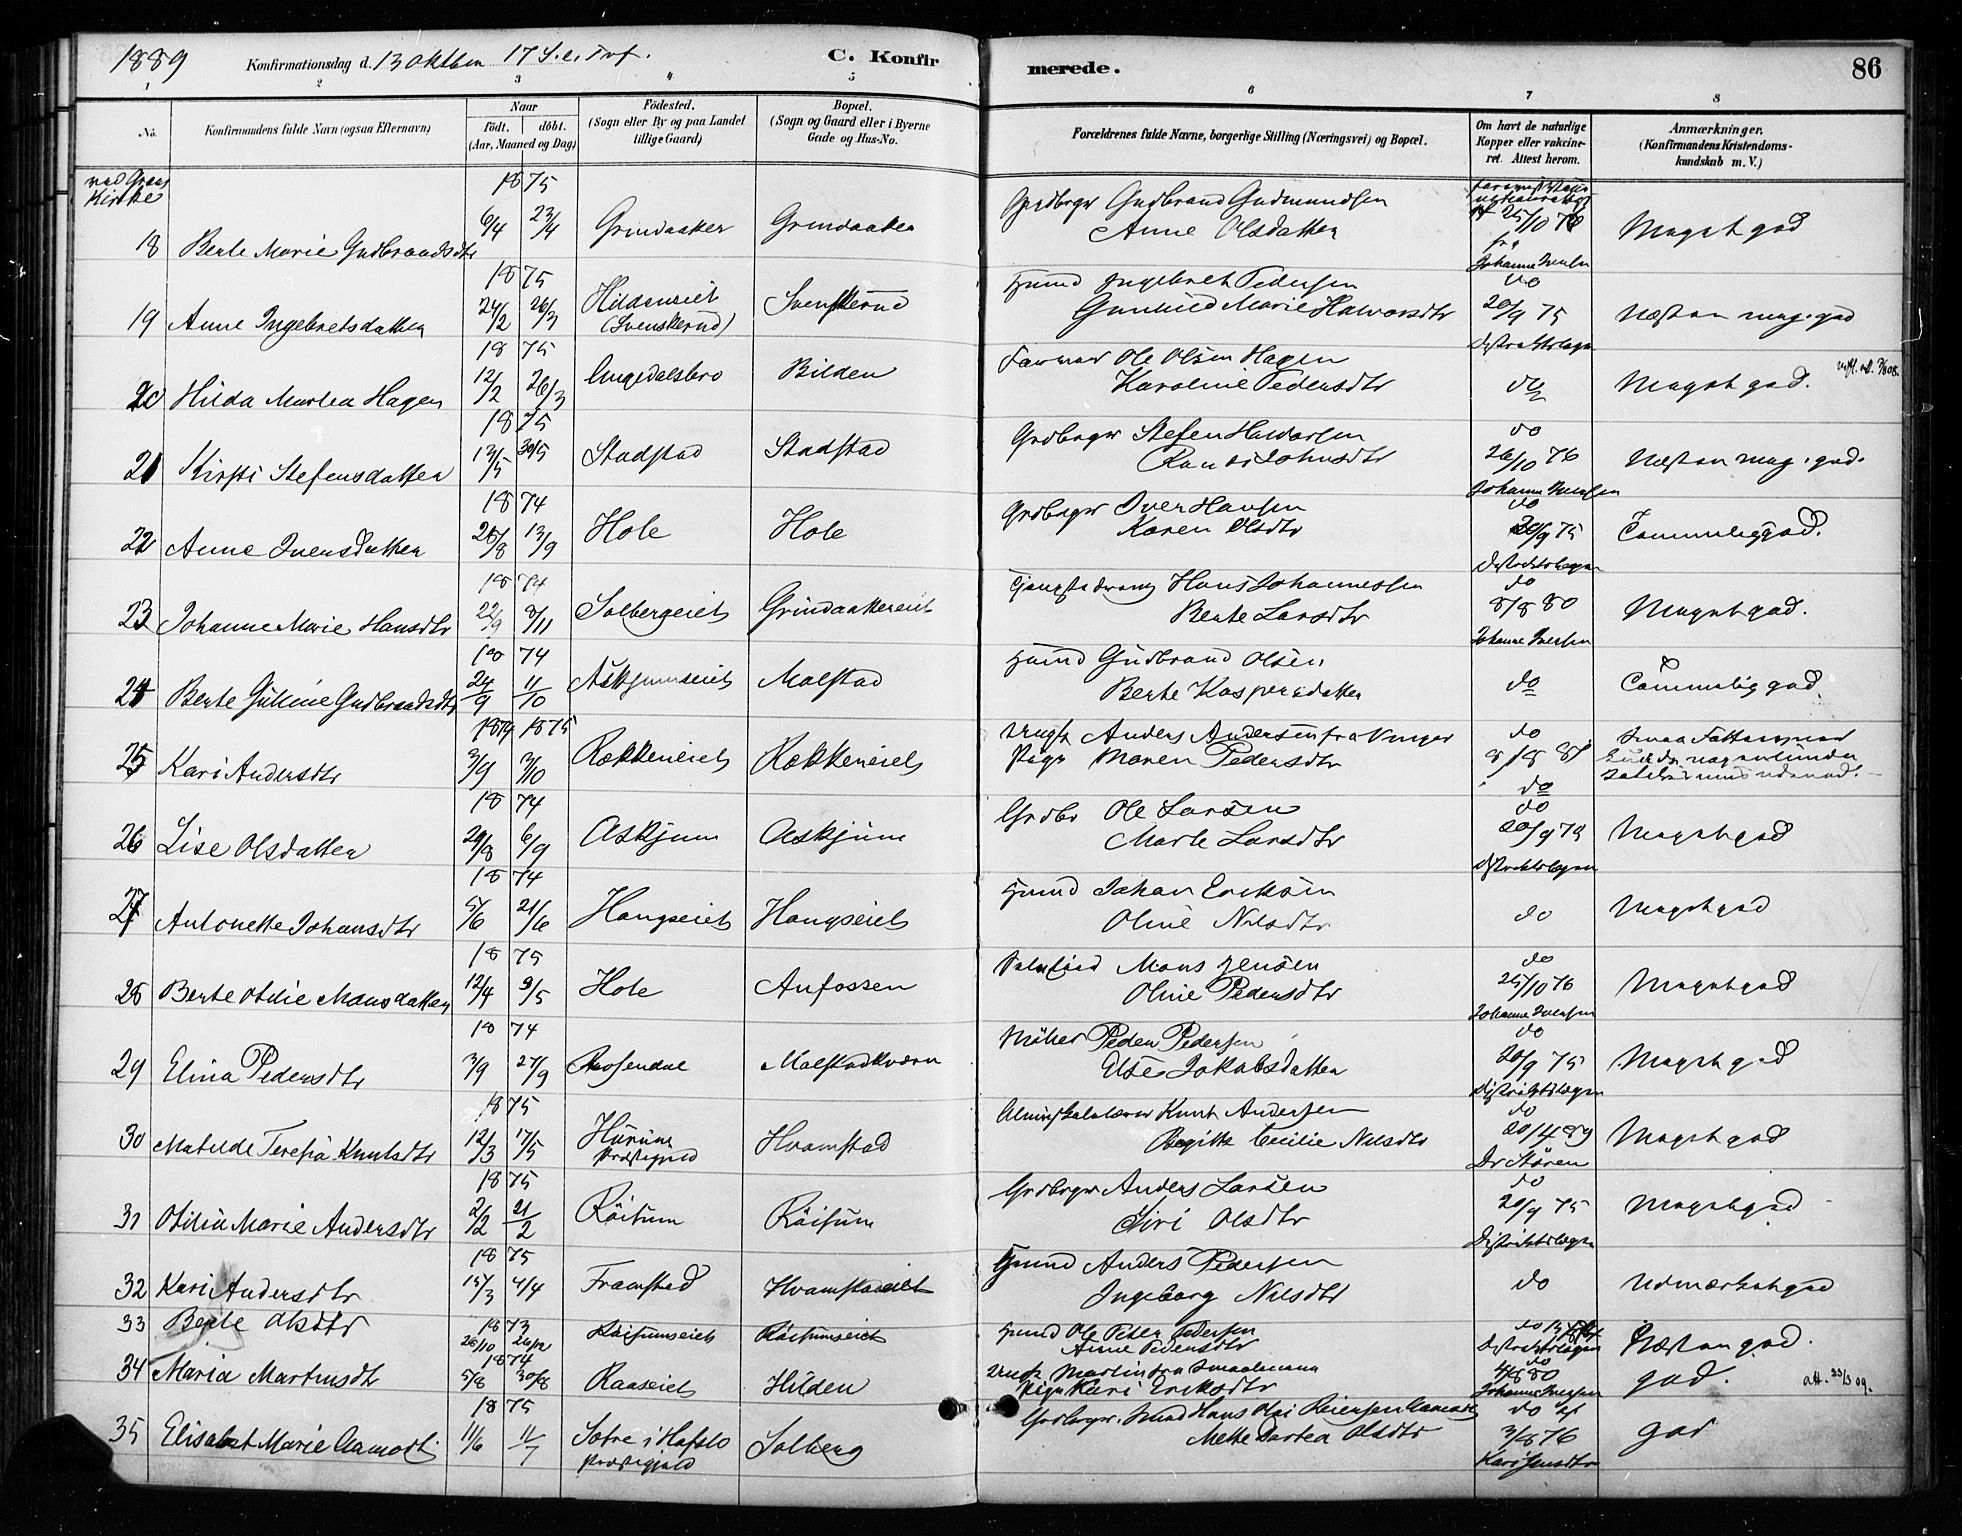 1889 Konfirmationsdag d. 13 oktber 17 S. e. Tref. C. Konfirmerede. 86
1 2 3 4 5 6 7 8
No. Konfirmandens fulde Navn (ogsaa Efternavn) Naar födt. döbt. (Aar, Maaned og Dag) Födested. (Sogn eller By og paa Landet tillige Gaard) Bopæl. (Sogn og Gaard eller i Byerne Gade og Hus-No. Forældrenes fulde Navne, borgerlige Stilling (Næringsvei) og Bopæl. Om havt de naturlige Kopper eller vakcineret. Attest herom. Anmærkninger. (Konfirmandens Kristendomskundskab m. V.)
ved Grans Kirke
18 Berte Marie Gudbrandsdtr 1875 6/4 23/4 Grindaaker Grindaaker Gudbrand Gudmundsen Anne Olsdatter 25/10 76 Johanne Iversen Meget god
19 Anne Ingebretsdatter 1875 24/2 26/3 Hildenseiet (Svenskerud) Svenskerud Husmd Ingebret Pedersen Gunhild Marie Halvorsdtr do 20/9 75 Distriktslægen Næsten meg. god
20 Hilda Martea Hagen 1875 12/2 26/3 Amgedalsbro Bilden Farver Ole Olsen Hagen Karoline Pedersdtr do Meget god.
21 Kirsti Stefensdatter 1875 13/5 30/5 Stadstad Stadstad Grdbrger Stefen Halvorsen Randi Johnsdtr do 26/10 76 Johanne Iversen Næsten meg. god.
22 Anne Iversdatter 1874 26/8 13/9 Hole Hole Grdbrger Iver Hansen Karen Olsdtr do 20/9 75 Distriktslægen Temmelig god.
23 Johanne Marie Hansdtr 1874 22/9 8/11 Solbergeiet Grindaakereiet Hans Johannessen Berte Larsdtr do 8/8 80 Johanne Iversen Meget god.
24 Berte Guline Gudbrandsdtr 1874 24/9 11/10 Askjumseiet Molstad Husmd Gudbrand Olsen Berte Kaspersdatter do Temmelig god.
25 Kari Andersdtr 1874 1875 3/9 3/10 Rækkeneiet Rækkeneiet Ungk Anders Andersen fra Vinger Pige Maren Pedersdtr do 8/8 81 do
26 Lise Olsdatter 1874 29/8 6/9 Askjum Askjum Grdbr Ole Larsen Marte Larsdtr do 20/9 75 Distriktslægen Meget god
27 Antonette Johansdtr 1874 5/6 21/6 Hangseiet Hangseiet Husmd Johan Eriksen Oline Nilsdtr do Meget god
28 Berte Otilie Mansdatter 1875 12/4 9/5 Hole Anfossen Mons Jensen Oline Pedersdtr do 25/10 76 Johanne Iversen Meget god
29 Elina Pedersdtr 1874 3/9 27/9 Rosendal Molstadkværn Möller Peder Pedersen Else Jakobsdatter do 20/9 75 Distriktslægen Meget god
30 Matilde Teresia Knutsdtr 1875 12/3 17/5 Hurum Præstegjeld Hvamstad Almueskolelærer Knut Andersen Birgitte Cecilie Nilsdtr do 20/4 89 Dr Stören Meget god
31 Otilia Marie Andersdtr 1875 2/2 21/2 Röisum Röisum Grdbrger Anders Larsen Siri Olsdtr do 20/9 75 Distriktslægen Meget god
32 Kari Andersdtr 1875 15/3 4/4 Framstad Hvamstadeiet Husmd Anders Pedersen Ingeborg Nilsdtr do Udmærket god
33 Berte Olsdtr 1873 26/10 26/12 Röisumseiet Röisumseiet Husmd Ole Peter Pedersen Anne Pedersdtr do Distriktslægen Næsten god.
34 Maria Martinsdtr 1874 5/8 30/8 Raaseiet Hilden Ungk Martin fra Smaalenene Pige Kari Eriksdtr do 4/8 80 Johanne Iversen god.
35 Elisabet Marie Aamodt 1875 11/6 11/7 Sotre i Hafslo Præstegjeld Solberg Mette Dortea Olsdtr do 3/8 76 Kari Jensdtr god